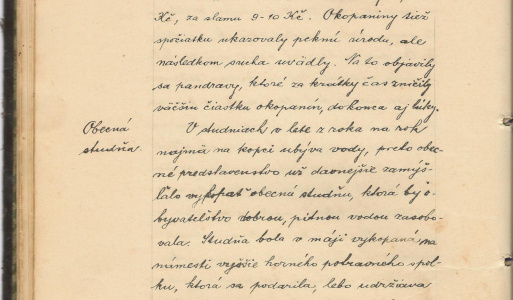 Kč, za slamu 9-10 Kč. Okopaniny tiež
spočiatku ukazovaly peknú úrodu, ale
následkom sucha uvädly. Na to objavily
sa pandravy, ktoré za krátky čas zničily
väčšiu čiastku okopanín, dokonca aj lúky.
Obecná
studňa.
V studniach v lete z roka na rok
najmä na kopci ubýva vody, preto obec-
né predstavenstvo už davnejšie zamýš-
ľalo vykopať obecnú studňu, ktorá by o-
byvateľstvo dobrou, pitnou vodou zasobo-
vala. Studňa bola v máji vykopaná, na
námestí vyššie horného potravného spol-
ku, ktorá sa podarila, lebo udržiava